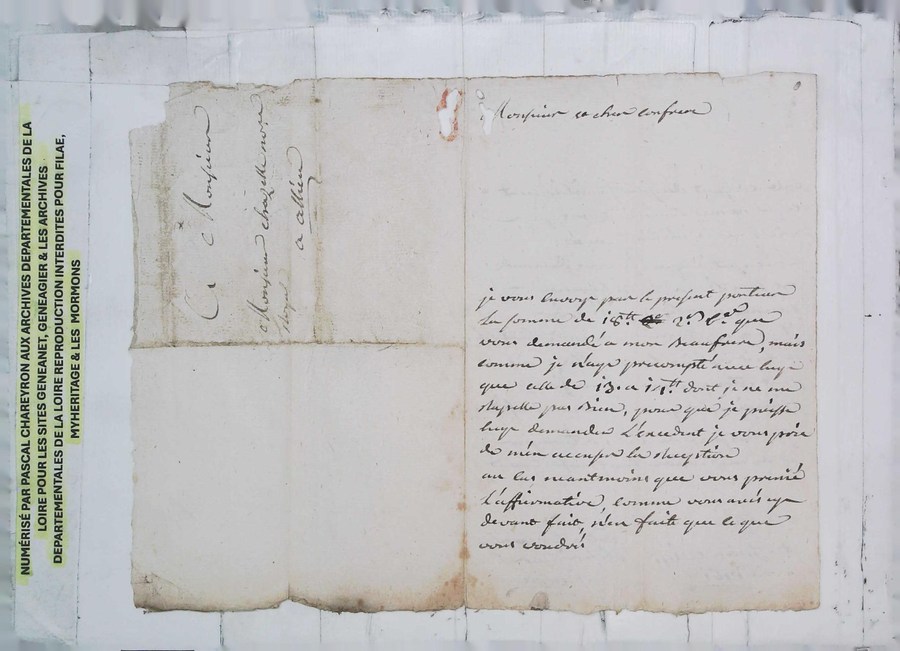 NUMÉRISÉ PAR PASCAL CHAREYRON AUX ARCHIVES DEPARTEMENTALES DE LA
LOIRE POUR LES SITES GENEANET, GENEAGIER & LES ARCHIVES
DEPARTEMENTALES DE LA LOIRE REPRODUCTION INTERDITES POUR FILAE,
MYHERITAGE & LES MORMONS
A Monsieur
Monsieur chazelle
a allieu
Monsieur et cher confrere
je vous envoye par le present porteur
la somme de 18tt 2s que
vous demandé a mon Beaufrere, mais
comme je n'aye precompté avec luye
que celle de 13 a 14tt dont je ne me
rapelle pas Bien, pour que je puisse
luye demander L'excedent je vous prie
de m'en accuser la reception
au cas neantmoins que vous prenié
L'affirmative, comme vous aviés cye
devant fait, n'en faite que ce que
vous voudrés